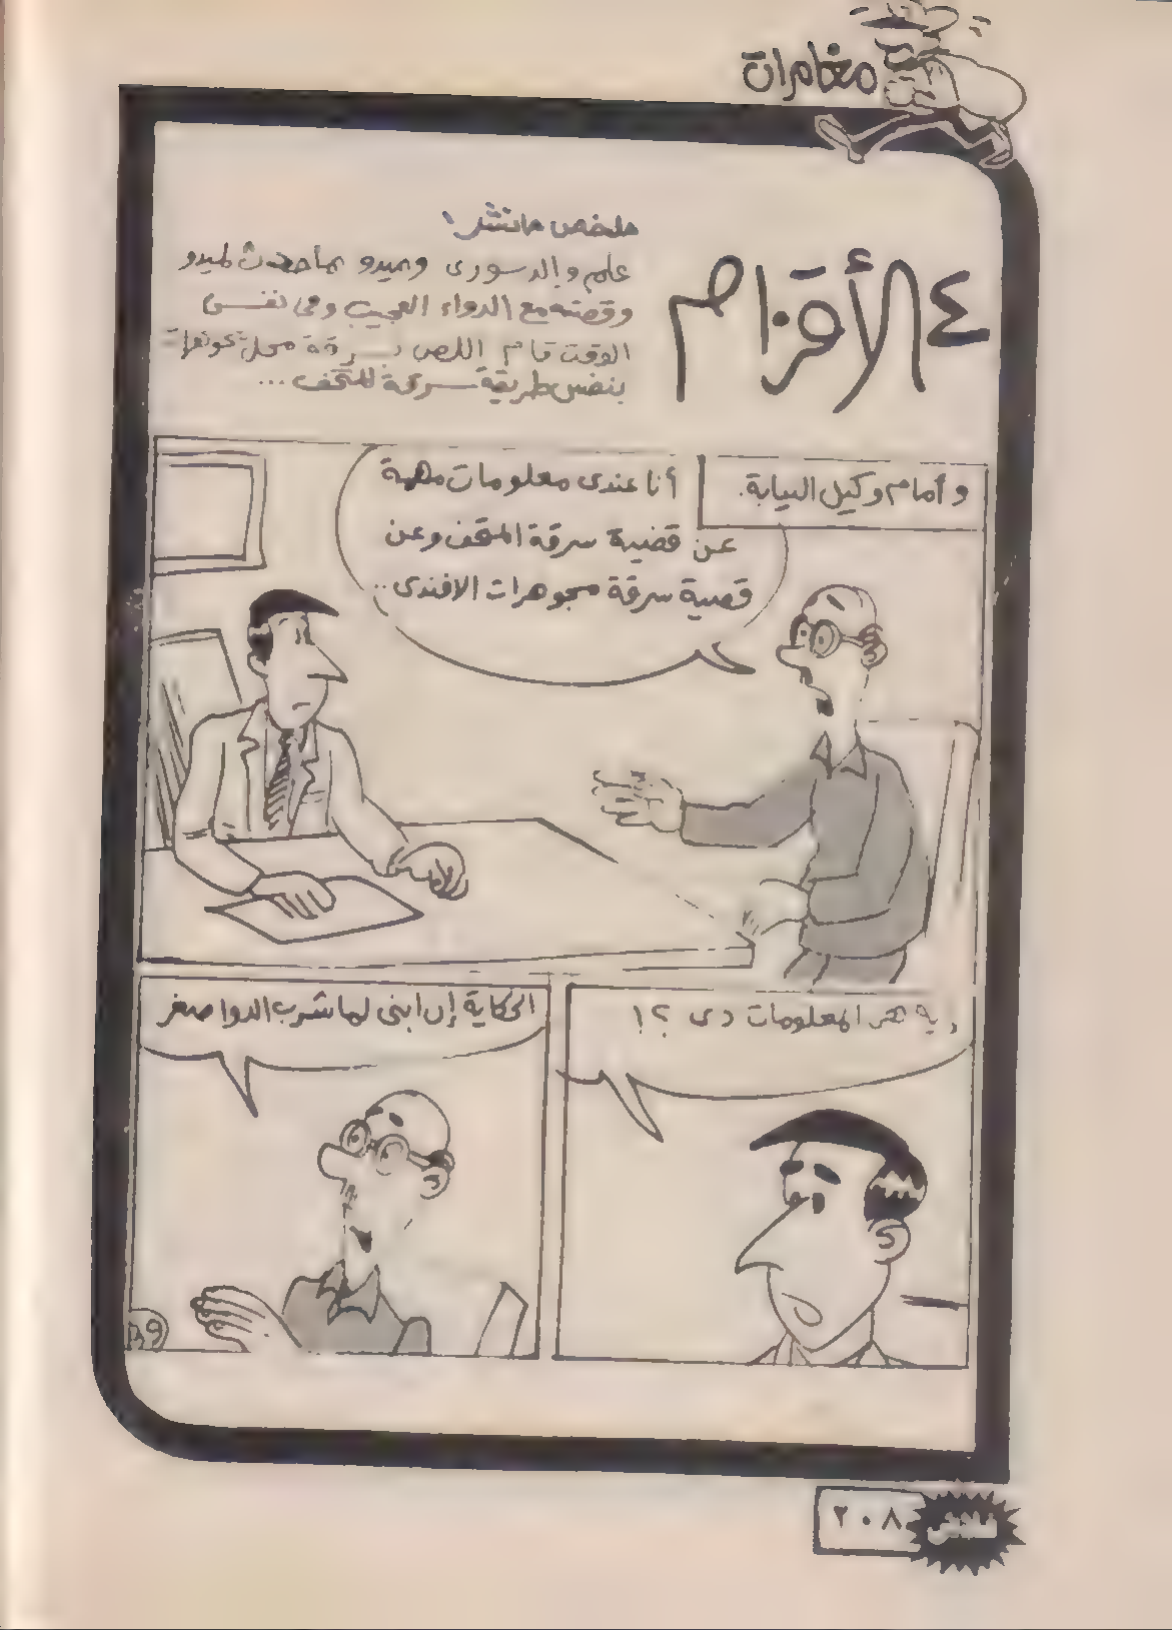 مغامرات
٤ الأقزام
ملخص ما نشر:
علم والد سورى وميدو بما حدث لميدو
وقصته مع الدواء العجيب وفى نفس
الوقت قام اللص بسرقة محل مجوهرات
بنفس طريقة سرقة المتحف ...
وأمام وكيل النيابة.
أنا عندى معلومات مهمة
عن قضية سرقة المتحف وعن
قضية سرقة مجوهرات الافندى..
إيه هى المعلومات دى ؟!
الحكاية إن ابنى لما شرب الدوا صغر
فلاش
٢٠٨